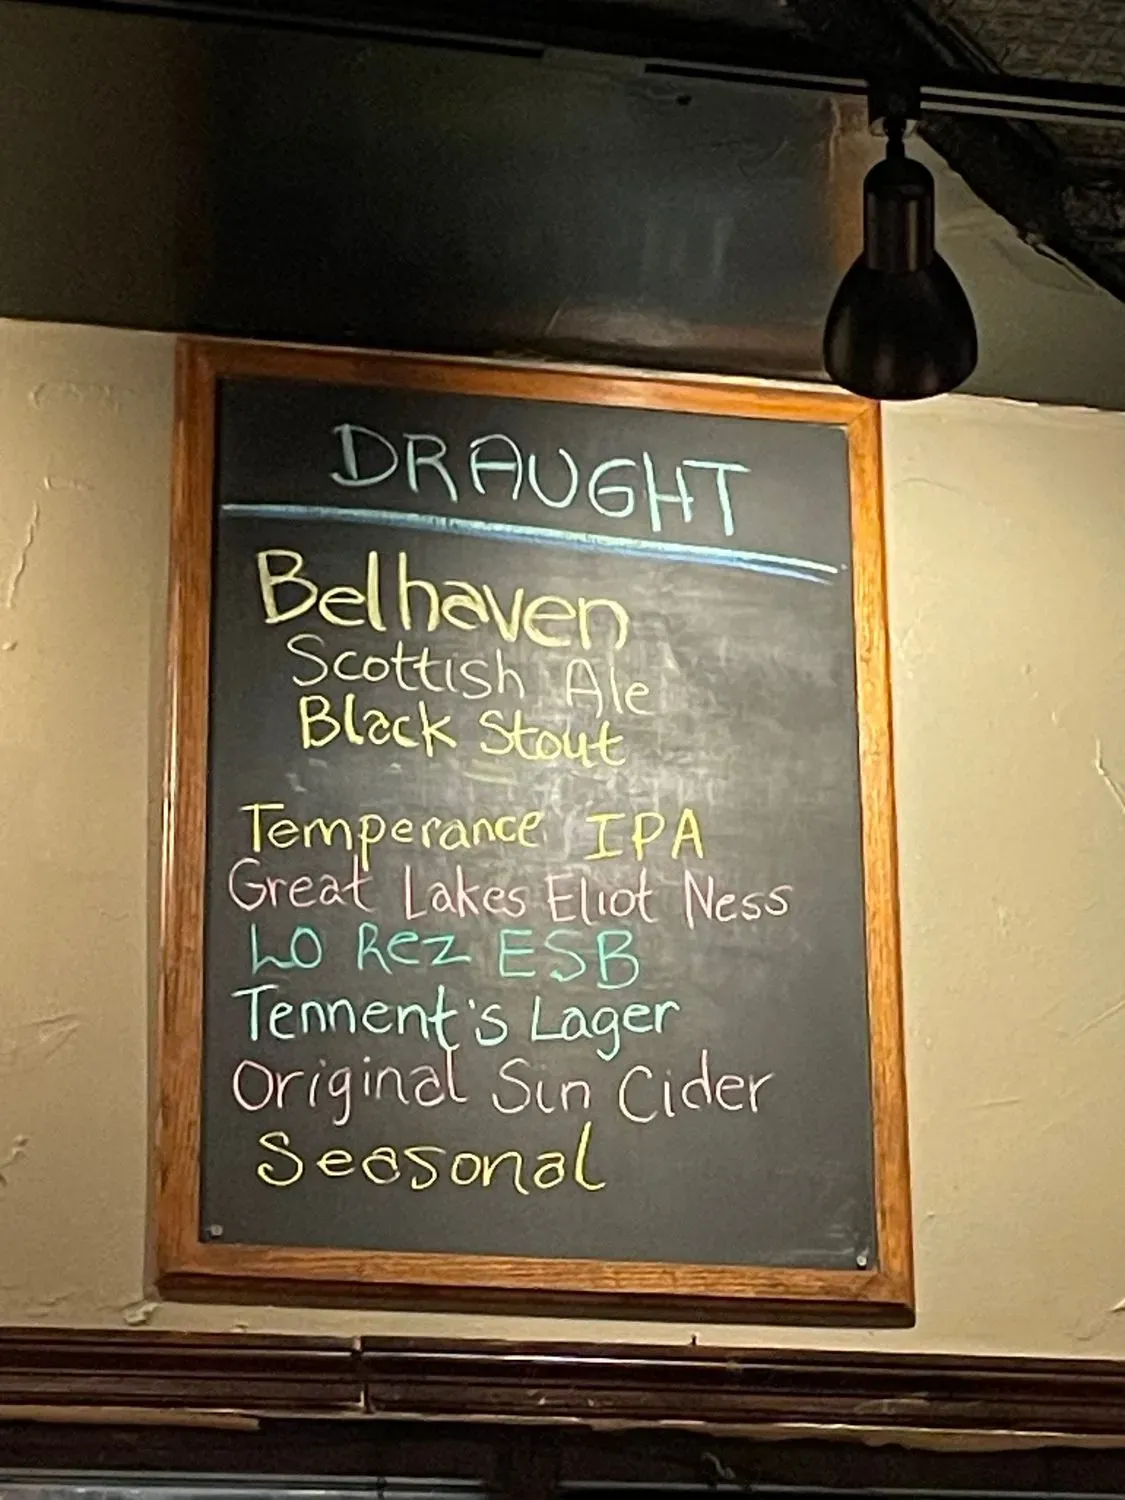 DRAUGHT
Belhaven
Scottish Ale
Black Stout
Temperance IPA
Great Lakes Eliot Ness
LO Rez ESB
Tennent's Lager
Original Sin Cider
Seasonal